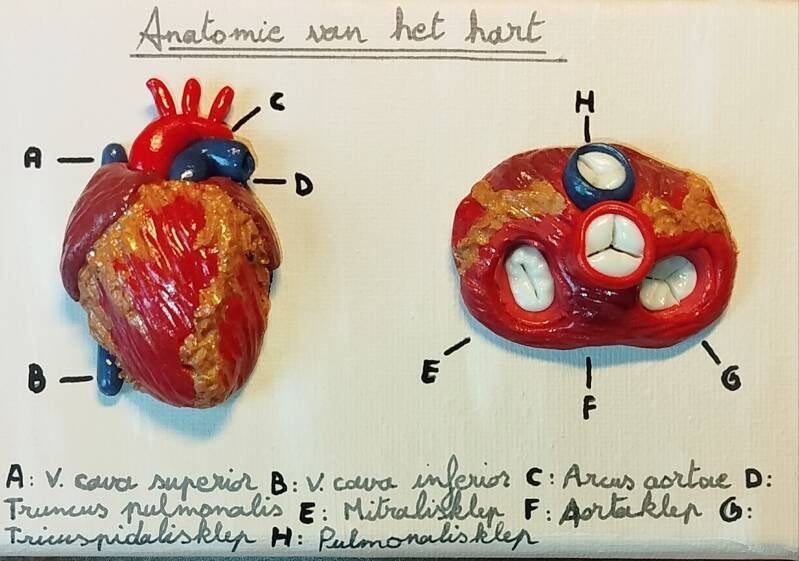 Anatomie van het hart
A
B
C
D
H
E
F
G
A: V. cava superior B: V. cava inferior C: Arcus aortae D:
Truncus pulmonalis E: Mitralisklep F: Aortaklep G:
Tricuspidalisklep H: Pulmonalisklep